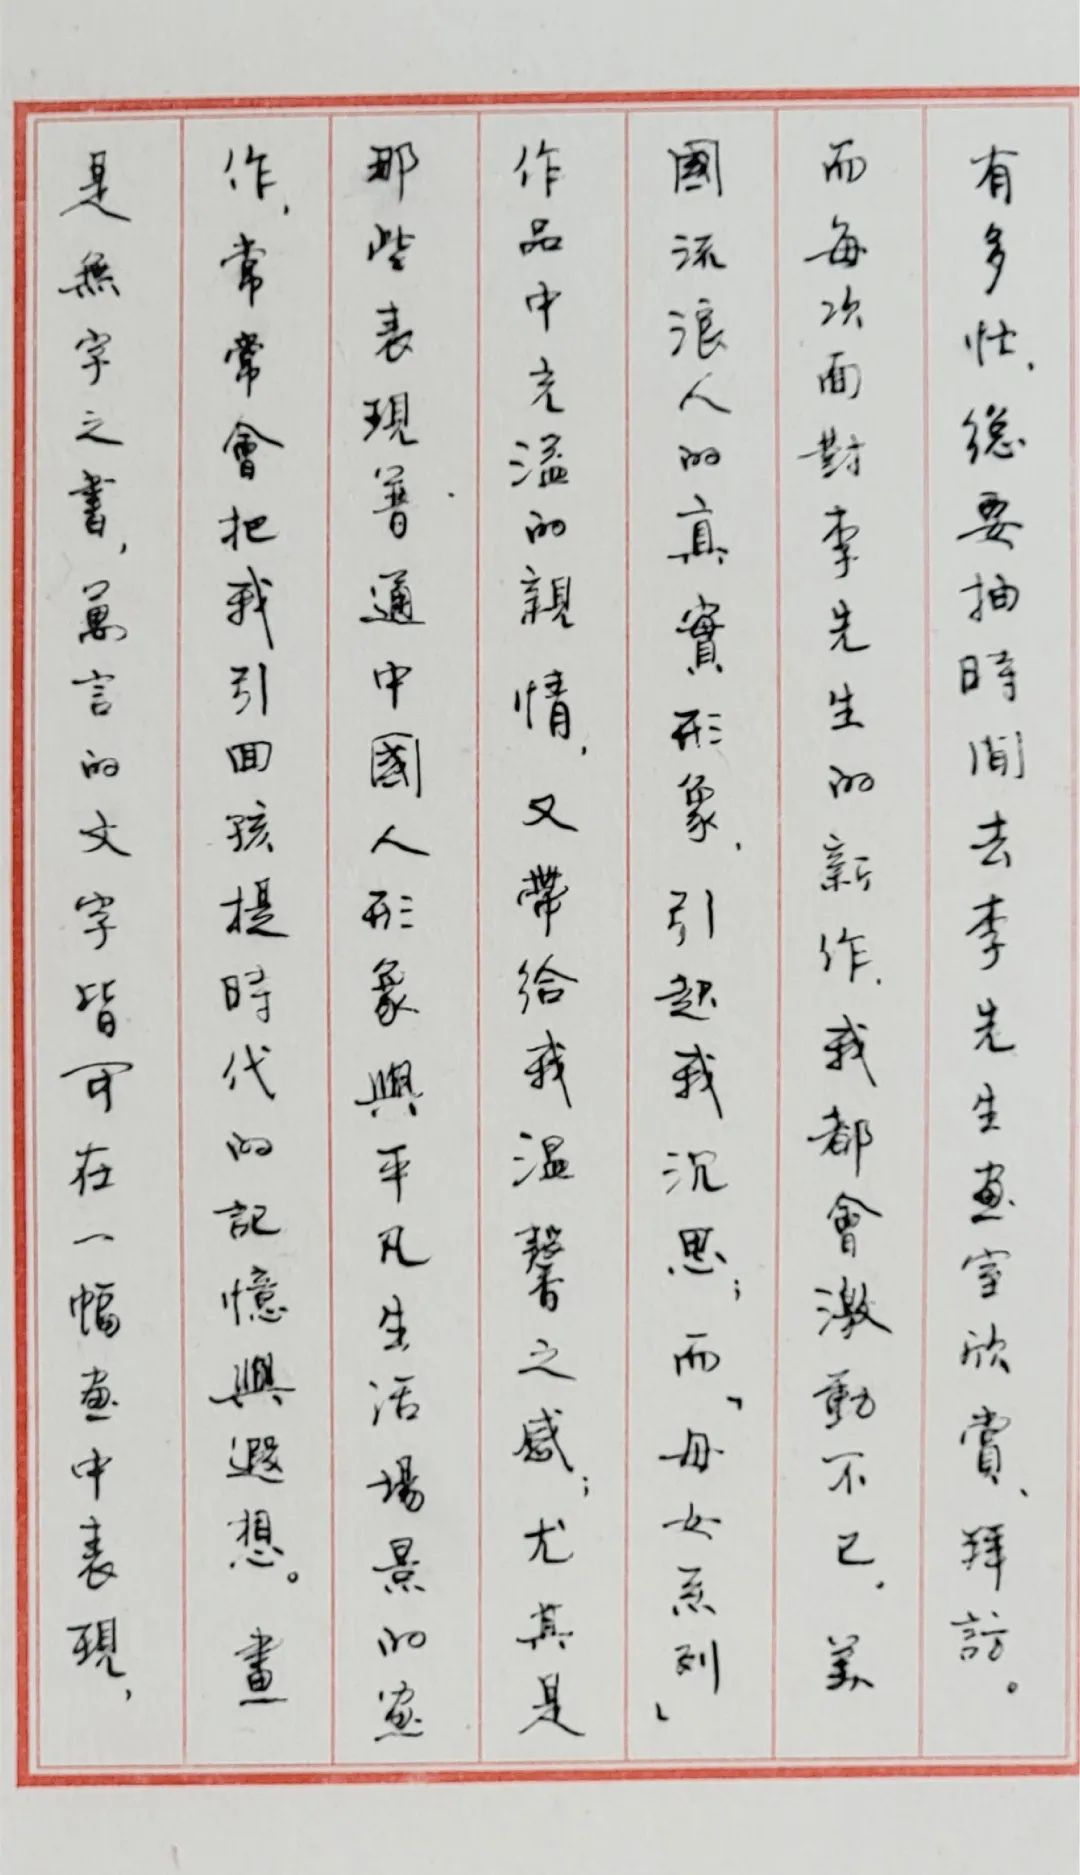 有多忙,總要抽時間去李先生畫室欣賞、拜訪。
而每次面對李先生的新作,我都會激動不已,美
國流浪人的真實形象,引起我沉思;而「母女系列」
作品中充溢的親情,又帶給我溫馨之感;尤其是
那些表現普通中國人形象與平凡生活場景的畫
作,常常會把我引回孩提時代的記憶與遐想。畫
是無字之書,萬言的文字皆可在一幅畫中表現,